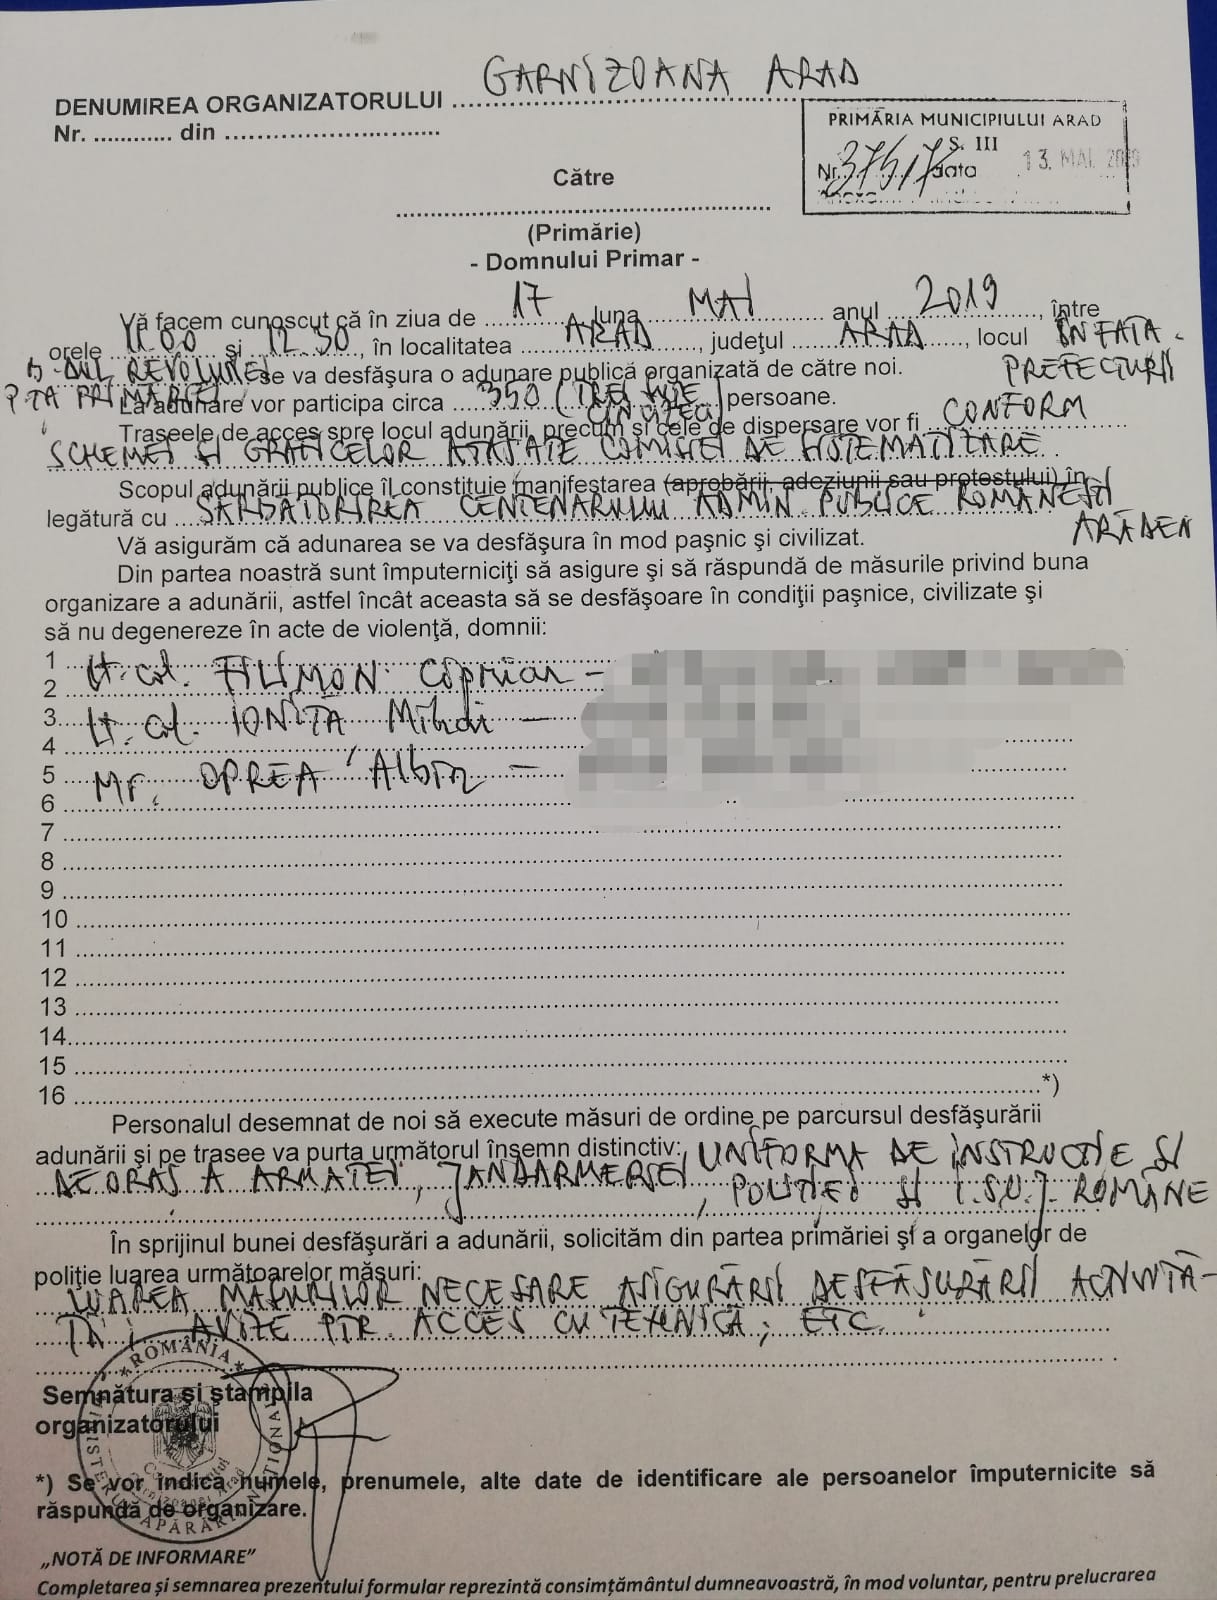 DENUMIREA ORGANIZATORULUI GARNIZOANA ARAD
Nr. ............ din ................................
PRIMĂRIA MUNICIPIULUI ARAD
S. III
Nr. 37517 data 13. MAI. 2019
Către
(Primărie)
- Domnului Primar -
Vă facem cunoscut că în ziua de 17 luna MAI anul 2019, între
orele 11.00 şi 12.30, în localitatea ARAD, judeţul ARAD, locul ÎN FAȚA
PREFECTURII
B-DUL REVOLUȚIEI se va desfăşura o adunare publică organizată de către noi.
P-TA PRIMĂRIEI La adunare vor participa circa 350 (TREI SUTE CINCIZECI) persoane.
Traseele de acces spre locul adunării, precum şi cele de dispersare vor fi CONFORM
SCHEMEI ȘI GRAFICELOR ATAȘATE COMISIEI DE SISTEMATIZARE.
Scopul adunării publice îl constituie manifestarea (aprobării, adeziunii sau protestului) în
legătură cu SĂRBĂTORIREA CENTENARULUI ADMIN PUBLICE ROMÂNEȘTI
ARĂDEN
Vă asigurăm că adunarea se va desfăşura în mod paşnic şi civilizat.
Din partea noastră sunt împuterniciţi să asigure şi să răspundă de măsurile privind buna
organizare a adunării, astfel încât aceasta să se desfăşoare în condiţii paşnice, civilizate şi
să nu degenereze în acte de violenţă, domnii:
1
2 Lt. col. FILIMON Ciprian -
3 Lt. col. IONIȚĂ Mihai -
4
5 Mr. OPREA Albin -
6
7
8
9
10
11
12
13
14
15
16 *)
Personalul desemnat de noi să execute măsuri de ordine pe parcursul desfăşurării
adunării şi pe trasee va purta următorul însemn distinctiv: UNIFORMA DE INSTRUCȚIE ȘI
DE ORAȘ A ARMATEI, JANDARMERIEI, POLIȚIEI ȘI I.S.U.J. ROMÂNE
În sprijinul bunei desfăşurări a adunării, solicităm din partea primăriei şi a organelor de
poliţie luarea următoarelor măsuri:
LUAREA MĂSURILOR NECESARE ASIGURĂRII DESFĂȘURĂRII ACTIVITĂ-
ȚII; AVIZE PTR. ACCES CU TEHNICĂ; ETC.
Semnătura şi ştampila
organizatorului
ROMÂNIA
MINISTERUL APĂRĂRII NAȚIONALE
Garnizoanei Arad
*) Se vor indica numele, prenumele, alte date de identificare ale persoanelor împuternicite să
răspundă de organizare.
„NOTĂ DE INFORMARE”
Completarea și semnarea prezentului formular reprezintă consimțământul dumneavoastră, în mod voluntar, pentru prelucrarea